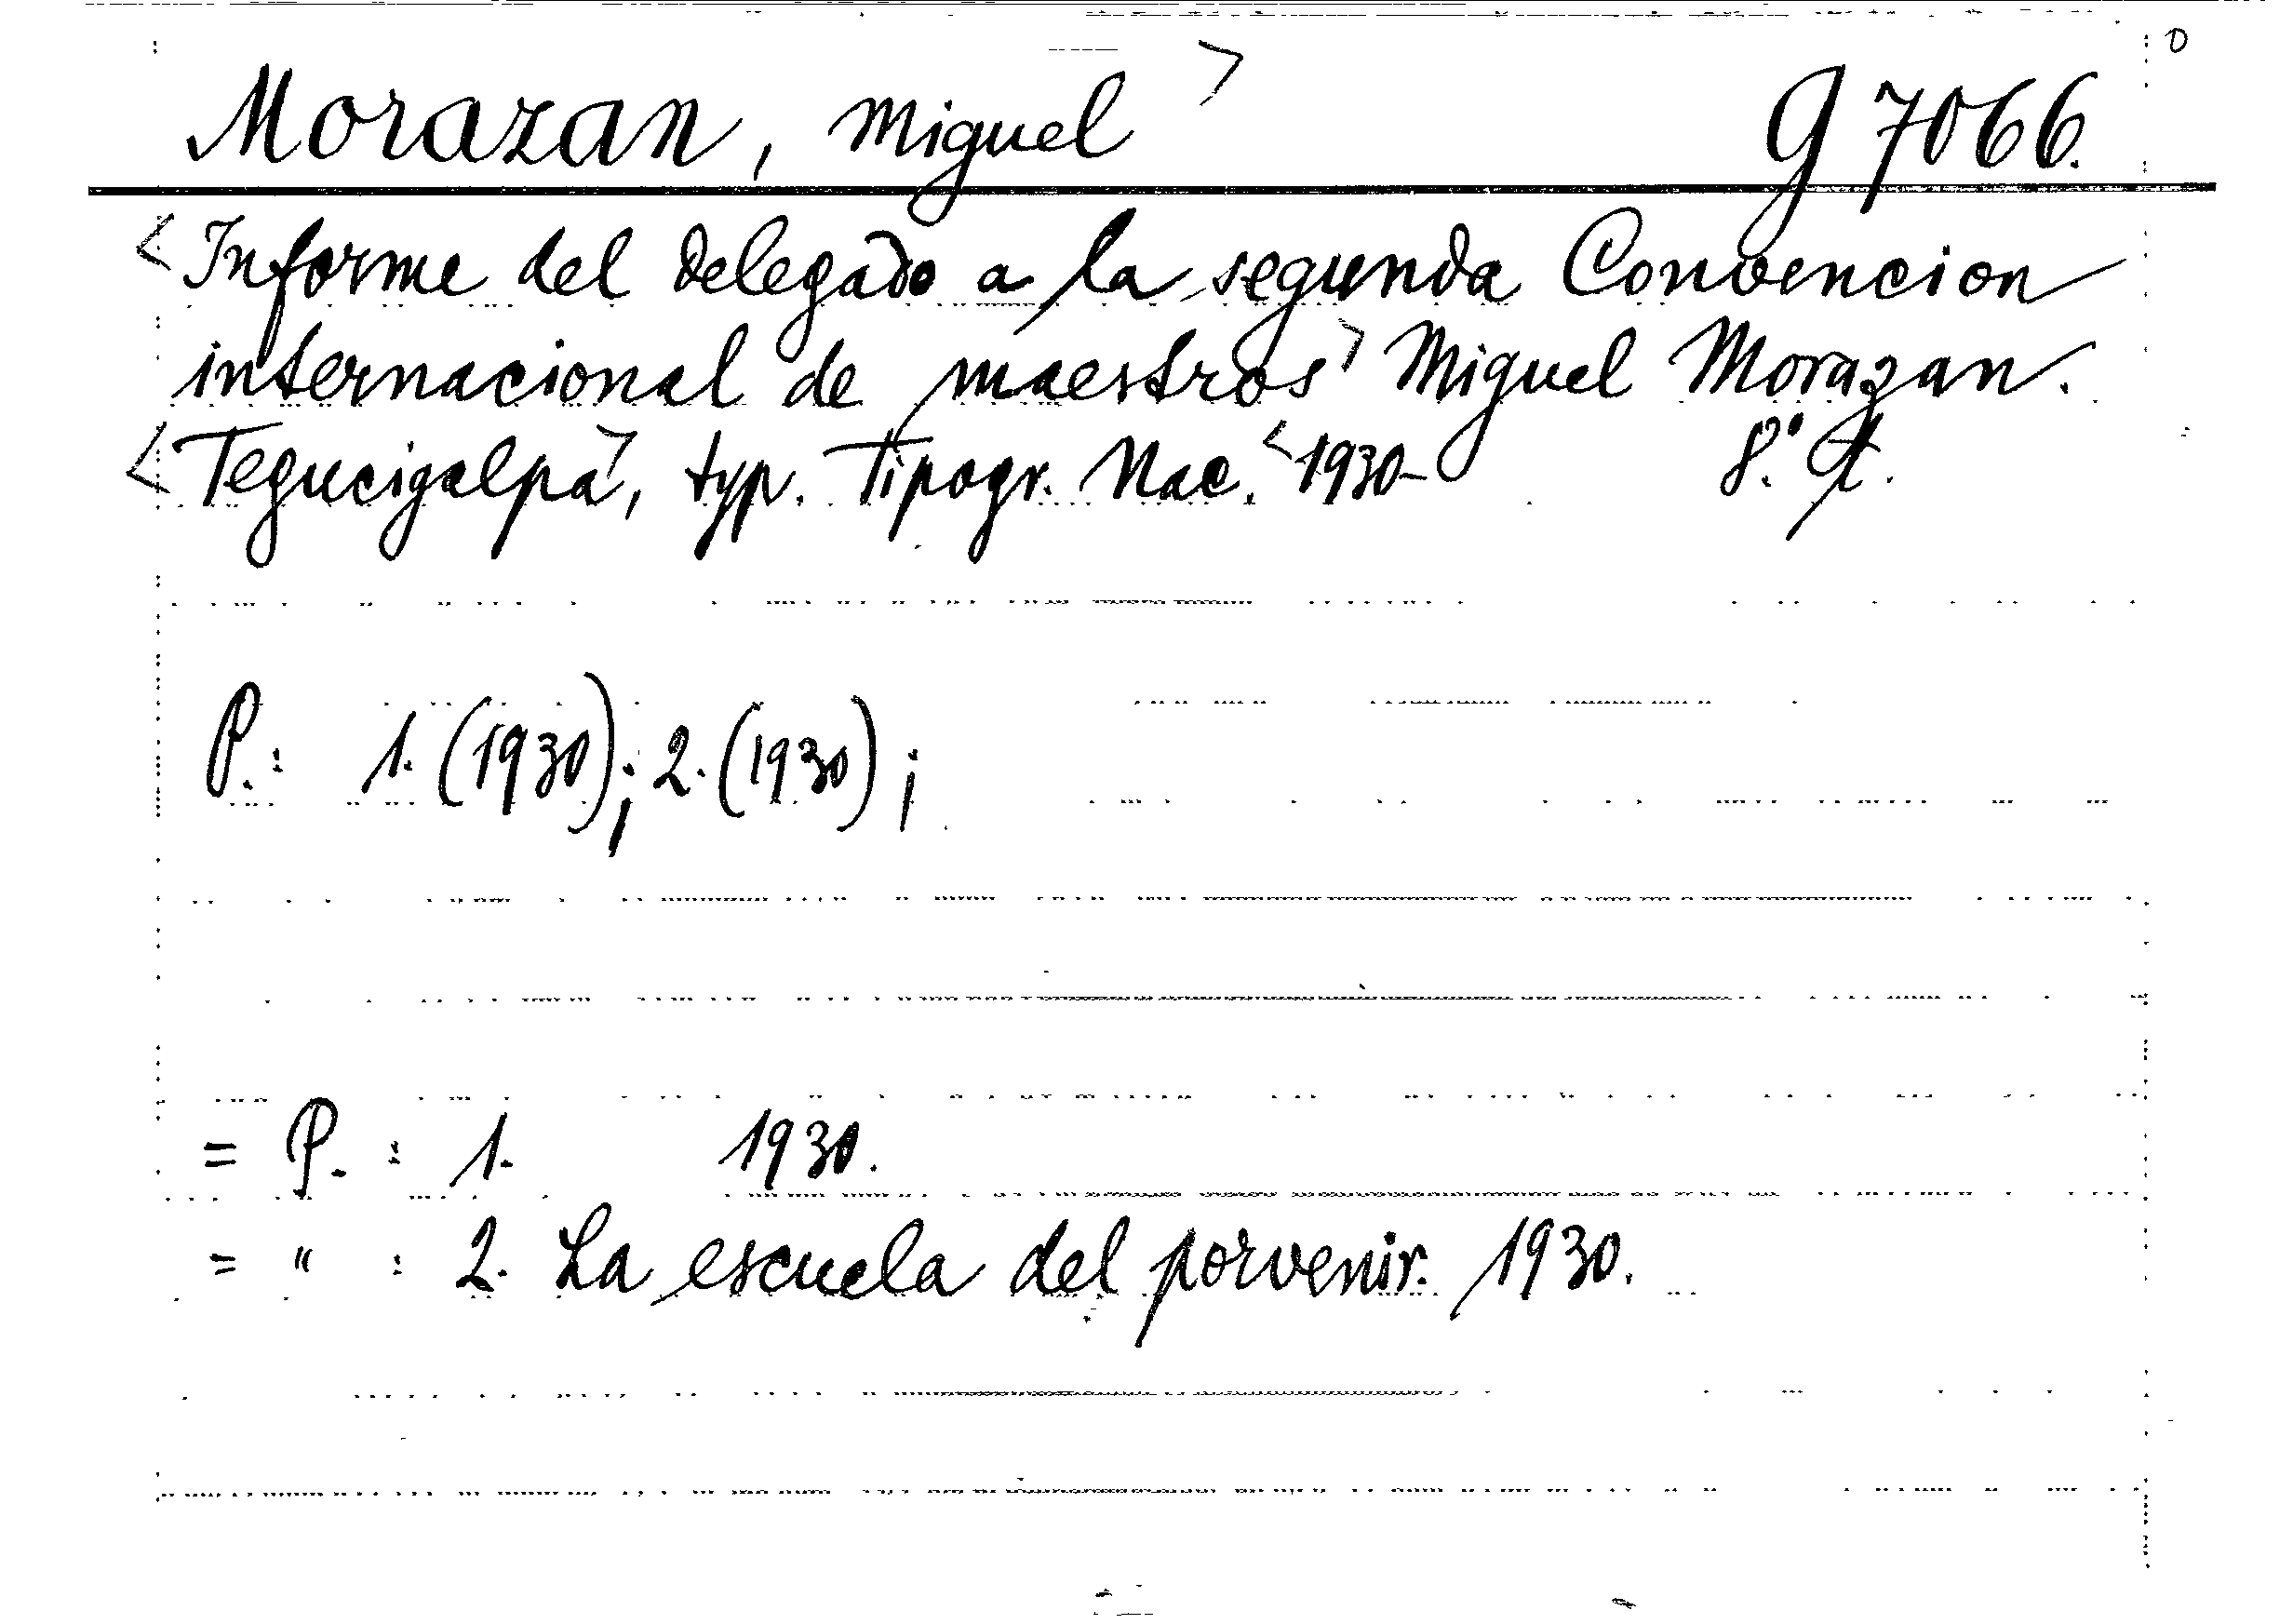 Morazan, Miguel> G 7066. D
<Informe del delegado a la segunda Convencion
internacional de maestros> Miguel Morazan.
<Tegucigalpa>, typ. Tipogr. Nac. <1930- 8.°
P.: 1. (1930); 2. (1930);
= P. : 1. 1930.
= " : 2. La escuela del porvenir. 1930.